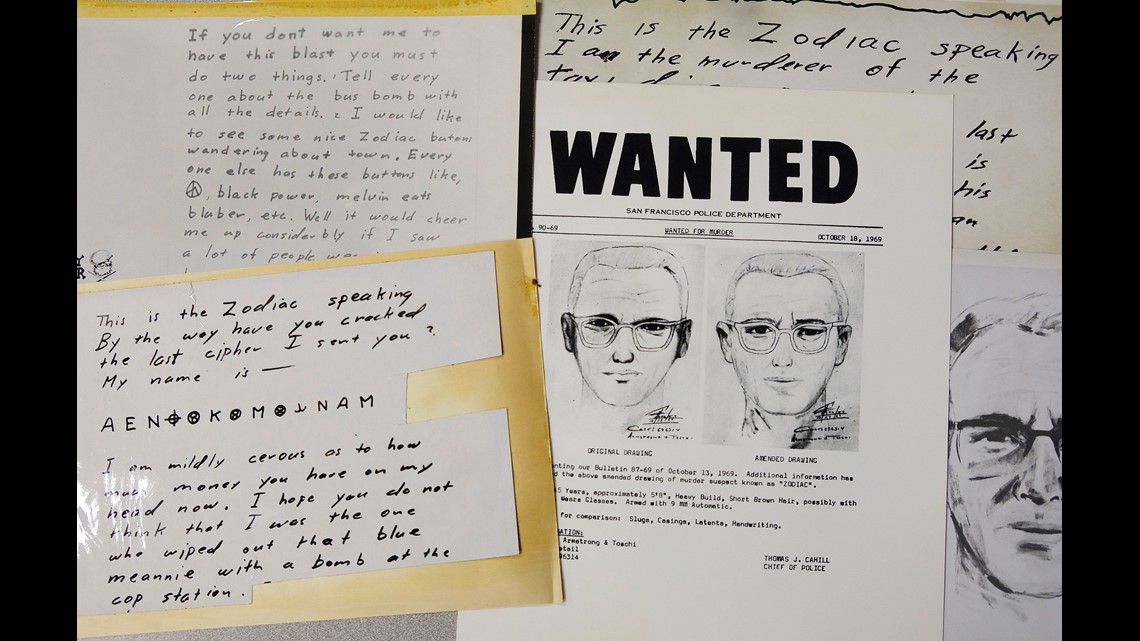 If you dont want me to
have this blast you must
do two things. 1 Tell every
one about the bus bomb with
all the details. 2 I would like
to see some nice Zodiac butons
wandering about town. Every
one else has these buttons like,
☮, black power, melvin eats
bluber, etc. Well it would cheer
me up considerbly if I saw
a lot of people
This is the Zodiac speaking
By the way have you cracked
the last cipher I sent you ?
My name is —
A E N ⌖ K M N A M
I am mildly cerous as to how
much money you have on my
head now. I hope you do not
think that I was the one
who wiped out that blue
meannie with a bomb at the
cop station.
This is the Zodiac speaking
I am the murderer of the
last
is
his
WANTED
SAN FRANCISCO POLICE DEPARTMENT
90-69 WANTED FOR MURDER OCTOBER 18, 1969
ORIGINAL DRAWING AMENDED DRAWING
nting our Bulletin 87-69 of October 13, 1969. Additional information has
d the above amended drawing of murder suspect known as "ZODIAC".
5 Years, approximately 5'8", Heavy Build, Short Brown Hair, possibly with
Wears Glasses. Armed with 9 MM Automatic.
for comparison: Slugs, Casings, Latents, Handwriting.
ATION:
Armstrong & Toschi
etail
96314
THOMAS J. CAHILL
CHIEF OF POLICE